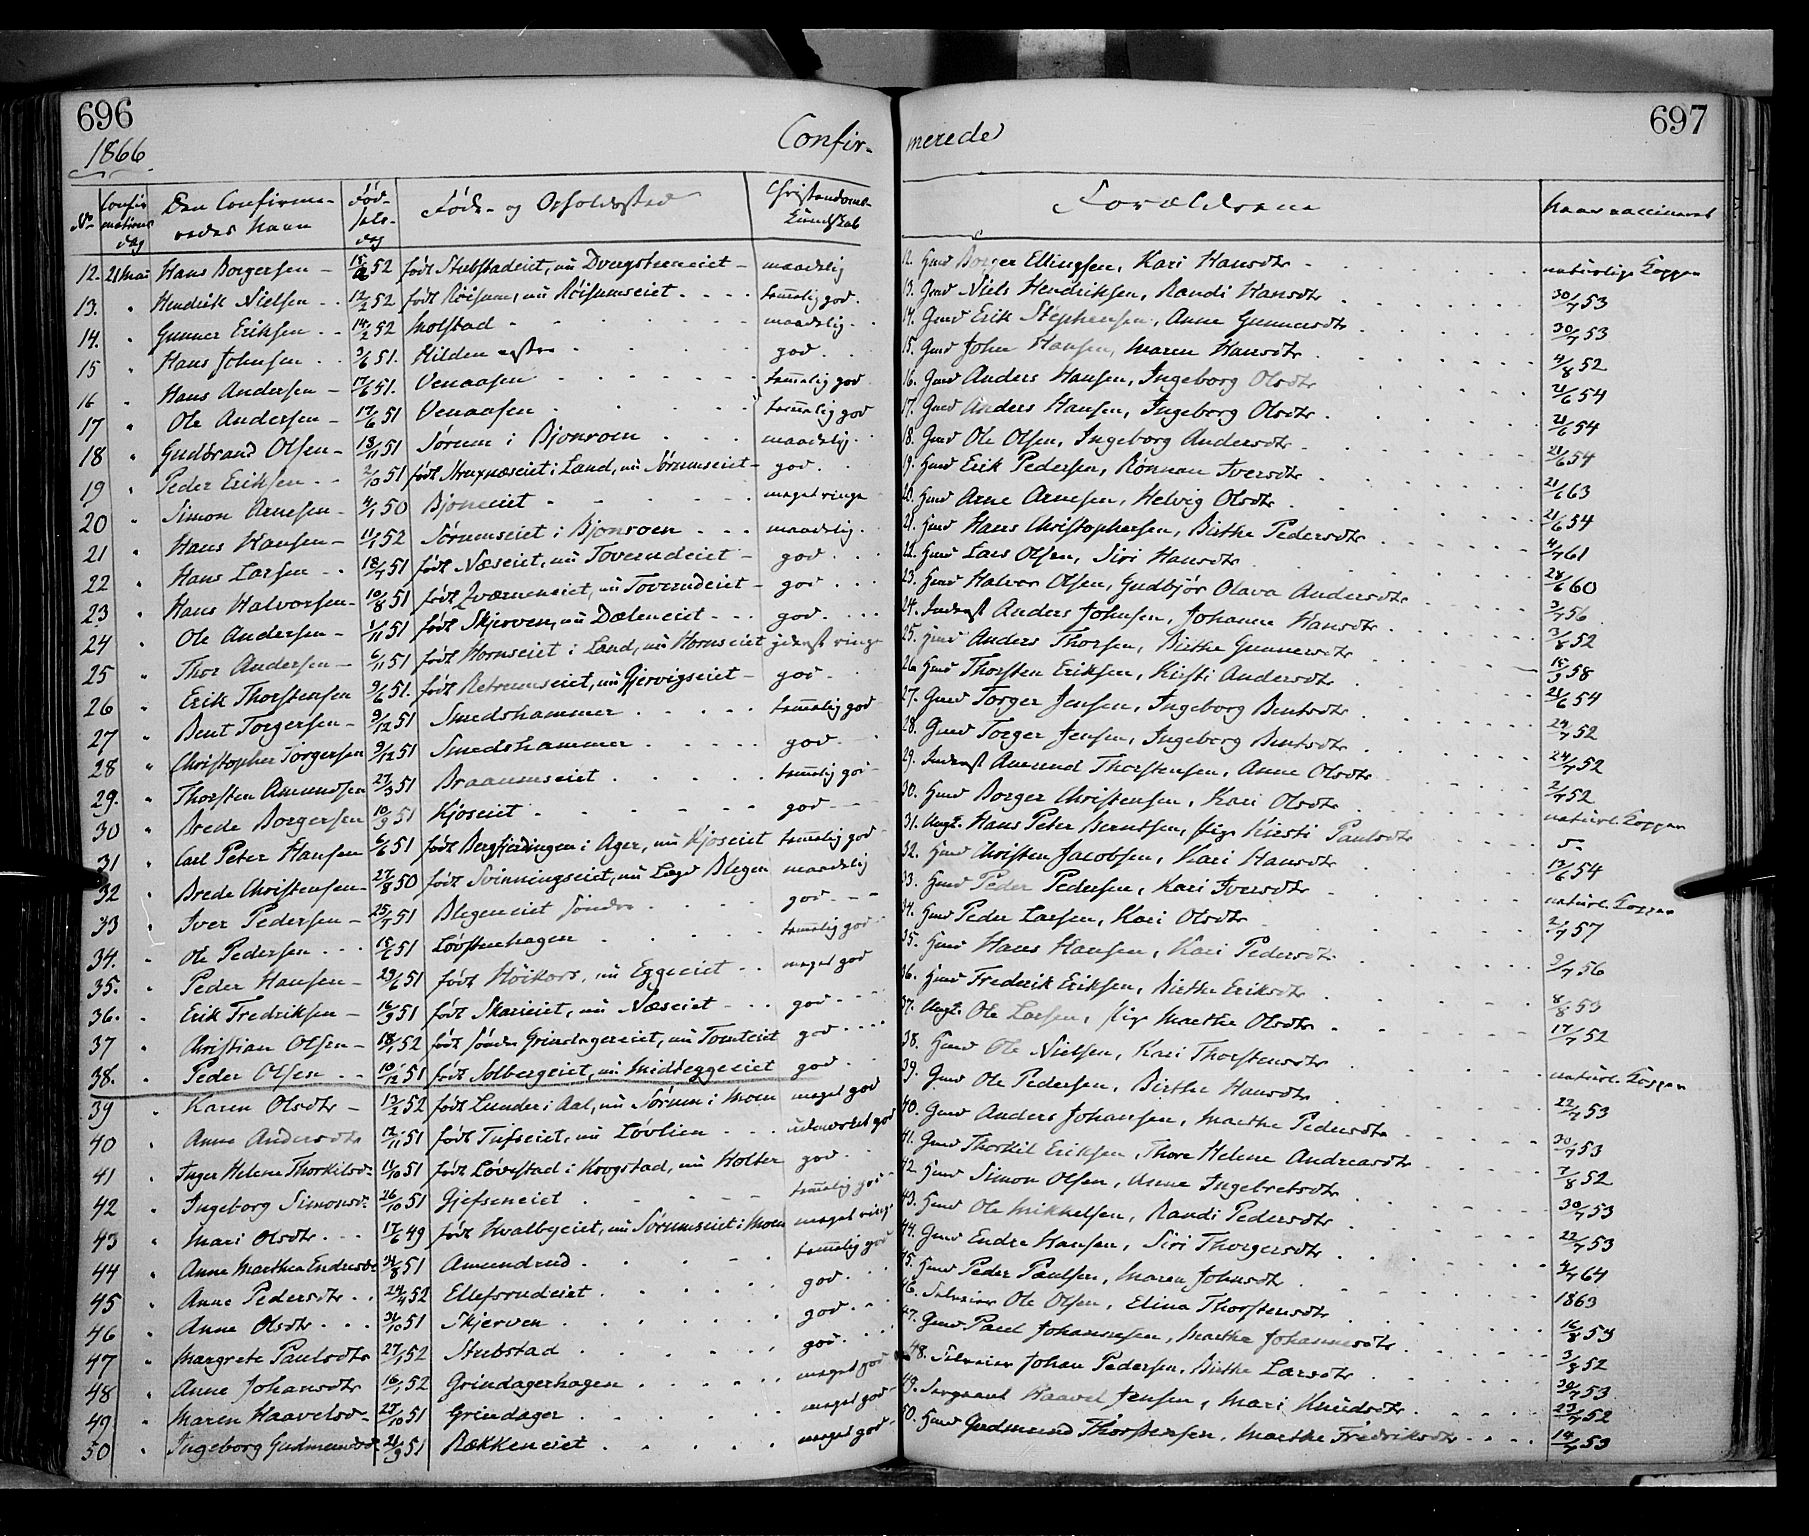 696
697
1866
Confir-
merede
No
Confirmations dag
Den Confirme-redes Navn
Fød-sels-dag
Føde- og Opholdssted
Christendoms-Kundskab
Forældrene
Naar vaccineret
12. 21 Mai Hans Borgersen - 52 født Stubstadeiet, nu Dvergsteneiet - maadelig 12. Hmd Borger Ellingsen, Kari Hansdtr naturlige Kopper
13. " Hendrik Nielsen - 12/2 52 født Røisum, nu Røisumseiet temmelig god. 13. Gmd Niels Hendriksen, Randi Hansdtr 30/7 53
14. " Gunner Eriksen - 14/2 52 Molstad maadelig 14. Gmd Erik Stephensen, Anne Gunnersdtr 30/7 53
15 " Hans Johnsen 9/6 51. Hilden god. 15. Gmd John Hansen, Maren Hansdtr 4/8 52
16 " Hans Andersen - 17/6 51. Venaasen temmelig god 16. Gmd Anders Hansen, Ingeborg Olsdtr 21/6 54
17 " Ole Andersen - 17/6 51 Venaasen temmelig god 17. Gmd Anders Hansen, Ingeborg Olsdtr 21/6 54
18 " Gudbrand Olsen - 18/11 51 Sørum i Bjonroen maadelig 18. Gmd Ole Olsen, Ingeborg Andersdtr 21/6 54
19 " Peder Eriksen 2/10 51 født Struxnæseiet i Land, nu Sørumseiet - god. 19. Hmd Erik Pedersen, Rønnau Iversdtr 21/6 63
20 " Simon Arnesen - 4/1 50 Bjoneiet meget ringe 20. Hmd Arne Arnesen, Helvig Olsdtr 21/6 54
21 " Hans Hansen - 11/1 52 Sørumseiet i Bjonroen maadelig 21. Hmd Hans Christophersen, Birthe Pedersdtr 4/7 61
22 " Hans Larsen 18/7 51 født Næseiet, nu Toverudeiet - god 22. Hmd Lars Olsen, Siri Hansdtr 28/6 60
23 " Hans Halvorsen - 10/8 51 født Kværneneiet, nu Toverudeiet - god 23. Hmd Halvor Olsen, Gudbjør Olava Andersdtr 3/7 56
24 " Ole Andersen - 1/11 51 født Skjerven, nu Dæleneiet god 24. Inderst Anders Johnsen, Johanne Hansdtr 3/8 52
25 " Thor Andersen - 6/11 51 født Hornseiet i Land, nu Hornseiet yderst ringe 25. Hmd Anders Thorsen, Birthe Gunnersdtr 15/9 58
26 " Erik Thorstensen 9/6 51. født Retrumseiet, nu Gjervigseiet - god. 26 Hmd Thorsten Eriksen, Kirsti Andersdtr 21/6 54
27 " Bent Torgersen - 9/12 51 Smedshammer temmelig god 27. Gmd Torger Jensen, Ingeborg Bentsdtr 24/7 52
28 " Christopher Torgersen 9/12 51 Smedshammer god 28. Gmd Torger Jensen, Ingeborg Bentsdtr 24/7 52
29. " Thorsten Amundsen 27/3 51 Braanumseiet temmelig god 29. Inderst Amund Thorstensen, Anne Olsdtr 2/7 52
30 " Brede Borgersen 10/9 51 Kjoseiet god 30. Hmd Borger Christensen, Kari Olsdtr naturl. Kopper
31 " Carl Peter Hansen 6/6 51 født Bergfjerdingen i Ager, nu Kjoseiet temmelig god 31. Ungk. Hans Peter Berntsen, pige Kirsti Paulsdtr do
32 " Brede Christensen - 27/8 50 født Svinningseiet, nu Lægd Blegen maadelig 32. Hmd Christen Jacobsen, Kari Hansdtr 12/6 54
33 " Iver Pedersen - 25/7 51 Blegeneiet søndre god 33. Hmd Peder Pedersen, Kari Iversdtr naturl. Kopper
34. " Ole Pedersen 15/6 51 Løvstenhagen temmelig god 34. Hmd Peder Larsen, Kari Olsdtr 2/7 57
35. " Peder Hansen - 29/6 51 født Høikors, nu Eggeeiet meget god 35. Hmd Hans Hansen, Kari Pedersdtr 9/7 56
36. " Erik Fredriksen - 16/9 51 født Skarieiet, nu Næseiet god 36. Hmd Frederik Eriksen, Birthe Eriksdtr 8/8 53
37 " Christian Olsen - 18/1 52 født søndre Grindagereiet, nu Tomteiet god 37. Ungk. Ole Larsen, pige Marthe Olsdtr 17/7 52
38. " Peder Olsen 10/12 51 født Solbergeiet, nu Midteggeeiet god 38. Hmd Ole Nielsen, Kari Thorstensdtr naturl. Kopper
39 " Karen Olsdtr - 13/2 52 født Lunder i Aal, nu Sørum i Moen meget god 39. Gmd Ole Pedersen, Birthe Hansdtr 22/7 53
40 " Anne Andersdtr 12/11 51 født Tufseiet, nu Løvlien udmærket god 40. Gmd Anders Johansen, Marthe Pedersdtr 30/7 53
41 " Inger Helene Thorkilsd. 11/10 51 født Løvestad i Krogstad, nu Holter god 41. Gmd Thorkil Eriksen, Thore Helene Andreasdtr 7/8 52
42 " Ingeborg Simonsd. 26/10 51 Gjefseneiet temmelig god 42. Hmd Simon Olsen, Anne Ingebretsdtr 30/7 53
43 " Mari Olsdtr 17/6 49 født Hvalbyeiet, nu Sørumseiet i Moen meget ringe 43. Hmd Ole Mikkelsen, Randi Pedersdtr 22/7 53
44 " Anne Marthea Endresdtr 31/8 51 Amundrud temmelig god 44. Gmd Endre Hansen, Siri Thorgersdtr 4/7 64
45 " Anne Pedersdtr 24/4 52 Ellefsrudeiet god 45. Hmd Peder Paulsen, Maren Johnsdtr 1863
46 " Anne Olsdtr 31/10 51 Skjerven god 46. Selveier Ole Olsen, Elina Thorstensdtr 16/8 53
47 " Margrete Paulsdtr 27/1 52 Stubstad god 47. Gmd Paul Johannesen, Marthe Johannesdtr 3/8 52
48 " Anne Johansdtr 16/1 52 Grindagerhagen meget god 48. Selveier Johan Pedersen, Birthe Larsdtr 30/7 53
49 " Maren Haavelsd. 27/10 51 Grindager meget god 49. Sergeant Haavel Jensen, Mari Knudsdtr 23/7 52
50 " Ingeborg Gudmundsd. 21/9 51 Rækkeneiet meget god 50. Hmd Gudmund Thorstensen, Marthe Fredriksdtr 14/7 53